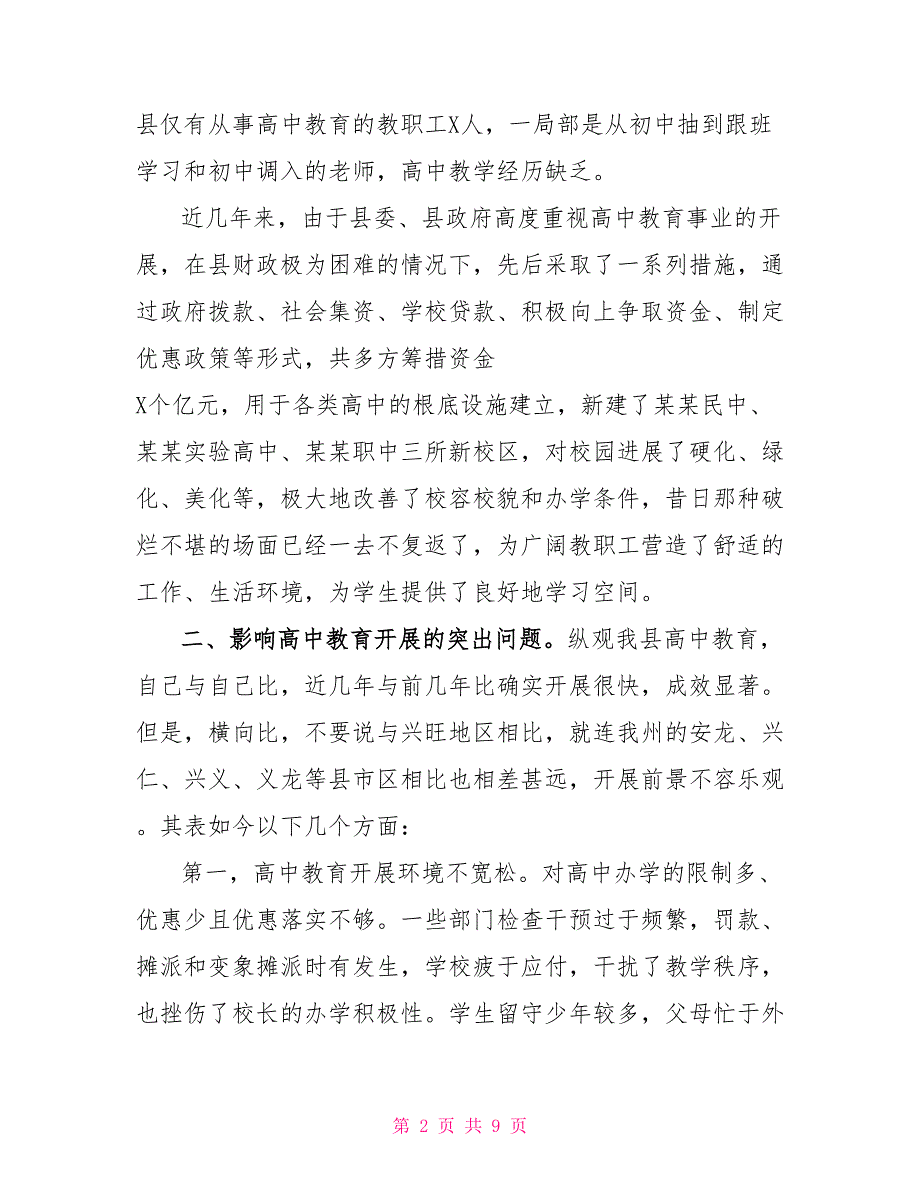 县仅有从事高中教育的教职工X人，一局部是从初中抽到跟班
学习和初中调入的老师，高中教学经历缺乏。
近几年来，由于县委、县政府高度重视高中教育事业的开
展，在县财政极为困难的情况下，先后采取了一系列措施，通
过政府拨款、社会集资、学校贷款、积极向上争取资金、制定
优惠政策等形式，共多方筹措资金
X个亿元，用于各类高中的根底设施建立，新建了某某民中、
某某实验高中、某某职中三所新校区，对校园进展了硬化、绿
化、美化等，极大地改善了校容校貌和办学条件，昔日那种破
烂不堪的场面已经一去不复返了，为广阔教职工营造了舒适的
工作、生活环境，为学生提供了良好地学习空间。
二、影响高中教育开展的突出问题。纵观我县高中教育，
自己与自己比，近几年与前几年比确实开展很快，成效显著。
但是，横向比，不要说与兴旺地区相比，就连我州的安龙、兴
仁、兴义、义龙等县市区相比也相差甚远，开展前景不容乐观
。其表如今以下几个方面：
第一，高中教育开展环境不宽松。对高中办学的限制多、
优惠少且优惠落实不够。一些部门检查干预过于频繁，罚款、
摊派和变象摊派时有发生，学校疲于应付，干扰了教学秩序，
也挫伤了校长的办学积极性。学生留守少年较多，父母忙于外
第 2 页 共 9 页